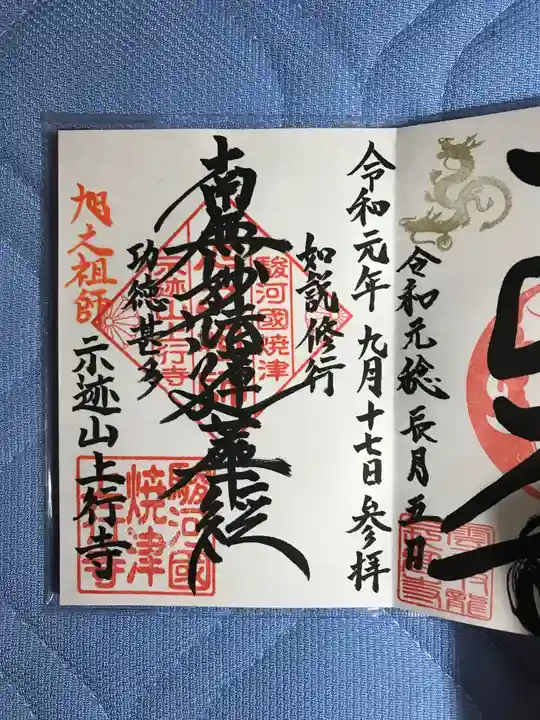 令和元稔 辰月五日
令和元年 九月十七日 参拝
如説修行
南無妙法蓮華経
功徳甚多
旭之祖師
示迹山上行寺
駿河國焼津
示迹山上行寺
駿河國
焼津
上行寺